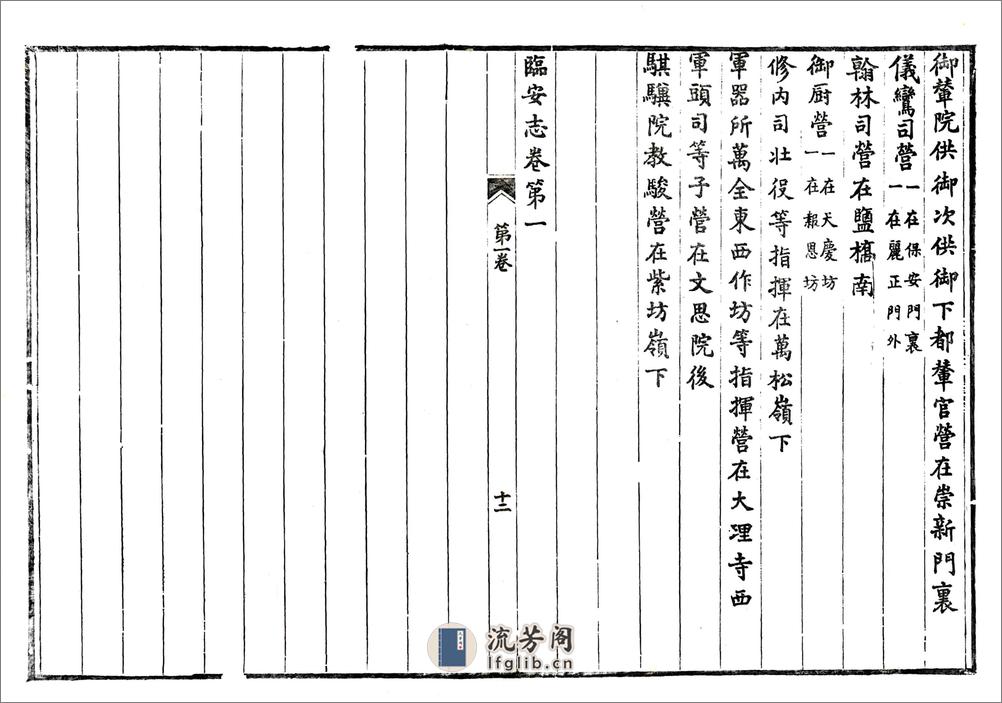 御輦院供御次供御下都輦官營在崇新門裏
儀鸞司營一在保安門裏一在麗正門外
翰林司營在鹽橋南
御厨營一在天慶坊一在報恩坊
修内司壯役等指揮在萬松嶺下
軍器所萬全東西作坊等指揮營在大理寺西
軍頭司等子營在文思院後
騏驥院教駿營在紫坊嶺下
臨安志卷第一
第一卷
十二
流芳阁
lfglib.cn